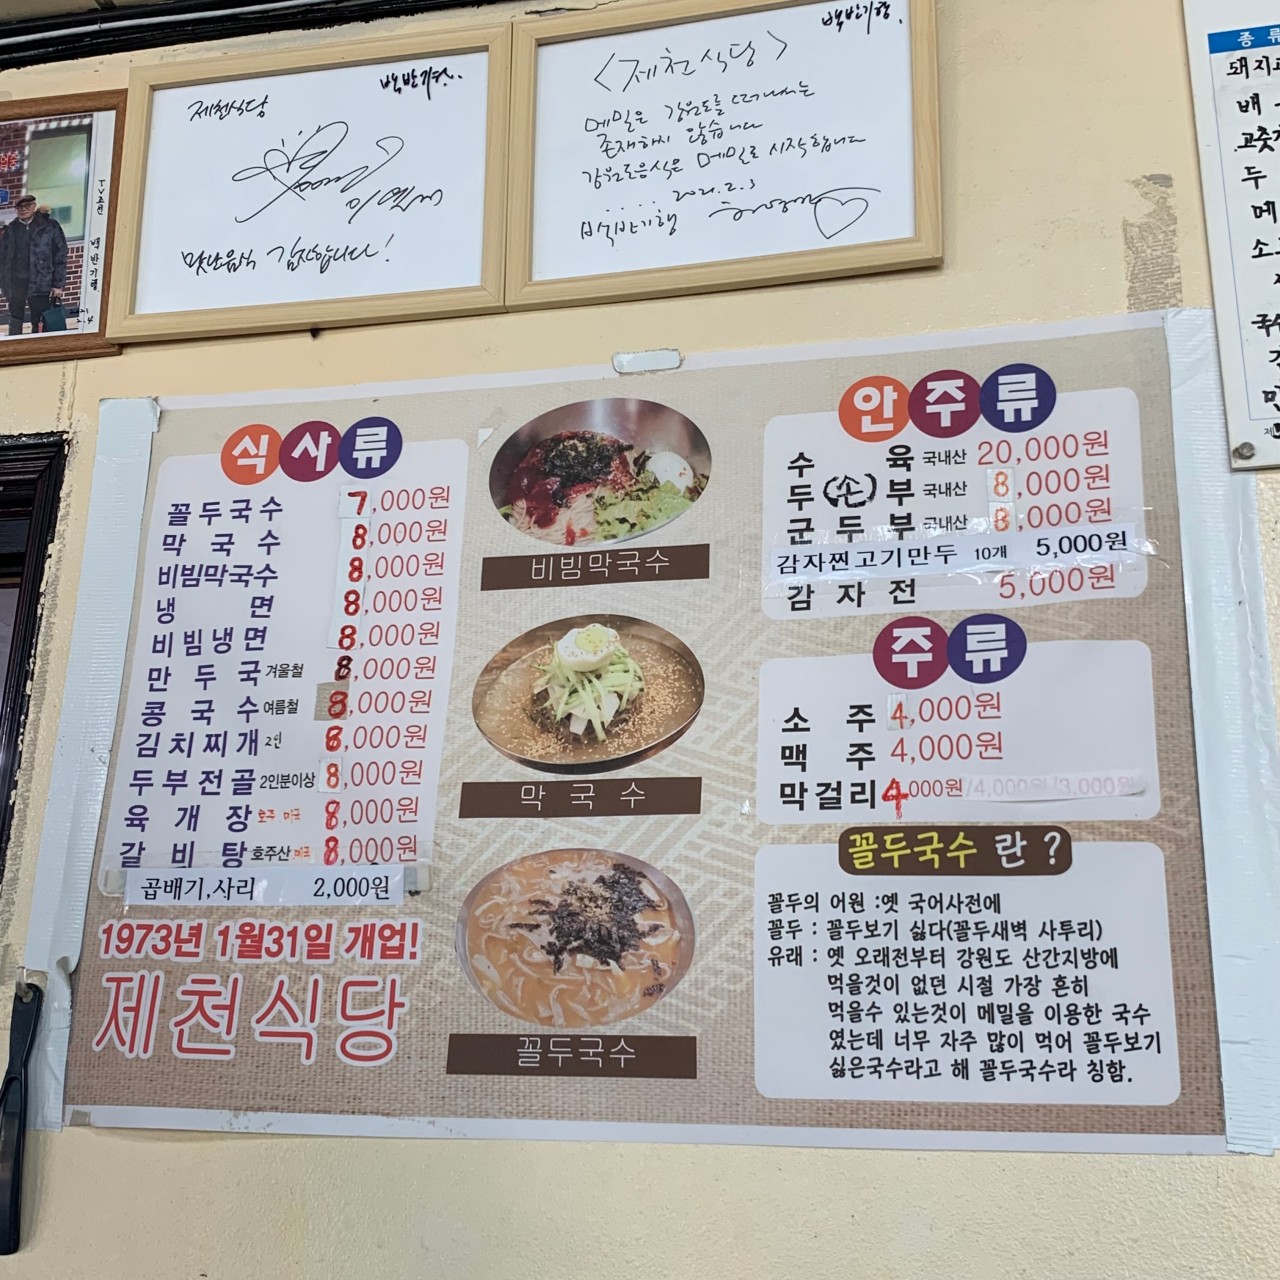 백반기행.
제천식당
맛난음식 감사합니다!
백반기행.
<제천식당>
메밀은 강원도를 떠나서는
존재하지 않습니다
강원도음식은 메밀로 시작합니다
..... 2021.2.3
백반기행 허영만
TV조선 백반기행
식사류
꼴두국수 7,000원
막국수 8,000원
비빔막국수 8,000원
냉면 8,000원
비빔냉면 8,000원
만두국 겨울철 8,000원
콩국수 여름철 8,000원
김치찌개 2인 8,000원
두부전골 2인분이상 8,000원
육개장 호주.미국 8,000원
갈비탕 호주산 미국 8,000원
곱배기,사리 2,000원
1973년 1월31일 개업!
제천식당
비빔막국수
막국수
꼴두국수
안주류
수육 국내산 20,000원
두(손)부 국내산 8,000원
군두부 국내산 8,000원
감자찐고기만두 10개 5,000원
감자전 5,000원
주류
소주 4,000원
맥주 4,000원
막걸리 4,000원/4,000원/3,000원
꼴두국수 란 ?
꼴두의 어원 :옛 국어사전에
꼴두 : 꼴두보기 싫다(꼴두새벽 사투리)
유래 : 옛 오래전부터 강원도 산간지방에
먹을것이 없던 시절 가장 흔히
먹을수 있는것이 메밀을 이용한 국수
였는데 너무 자주 많이 먹어 꼴두보기
싫은국수라고 해 꼴두국수라 칭함.
종류
배
두
메